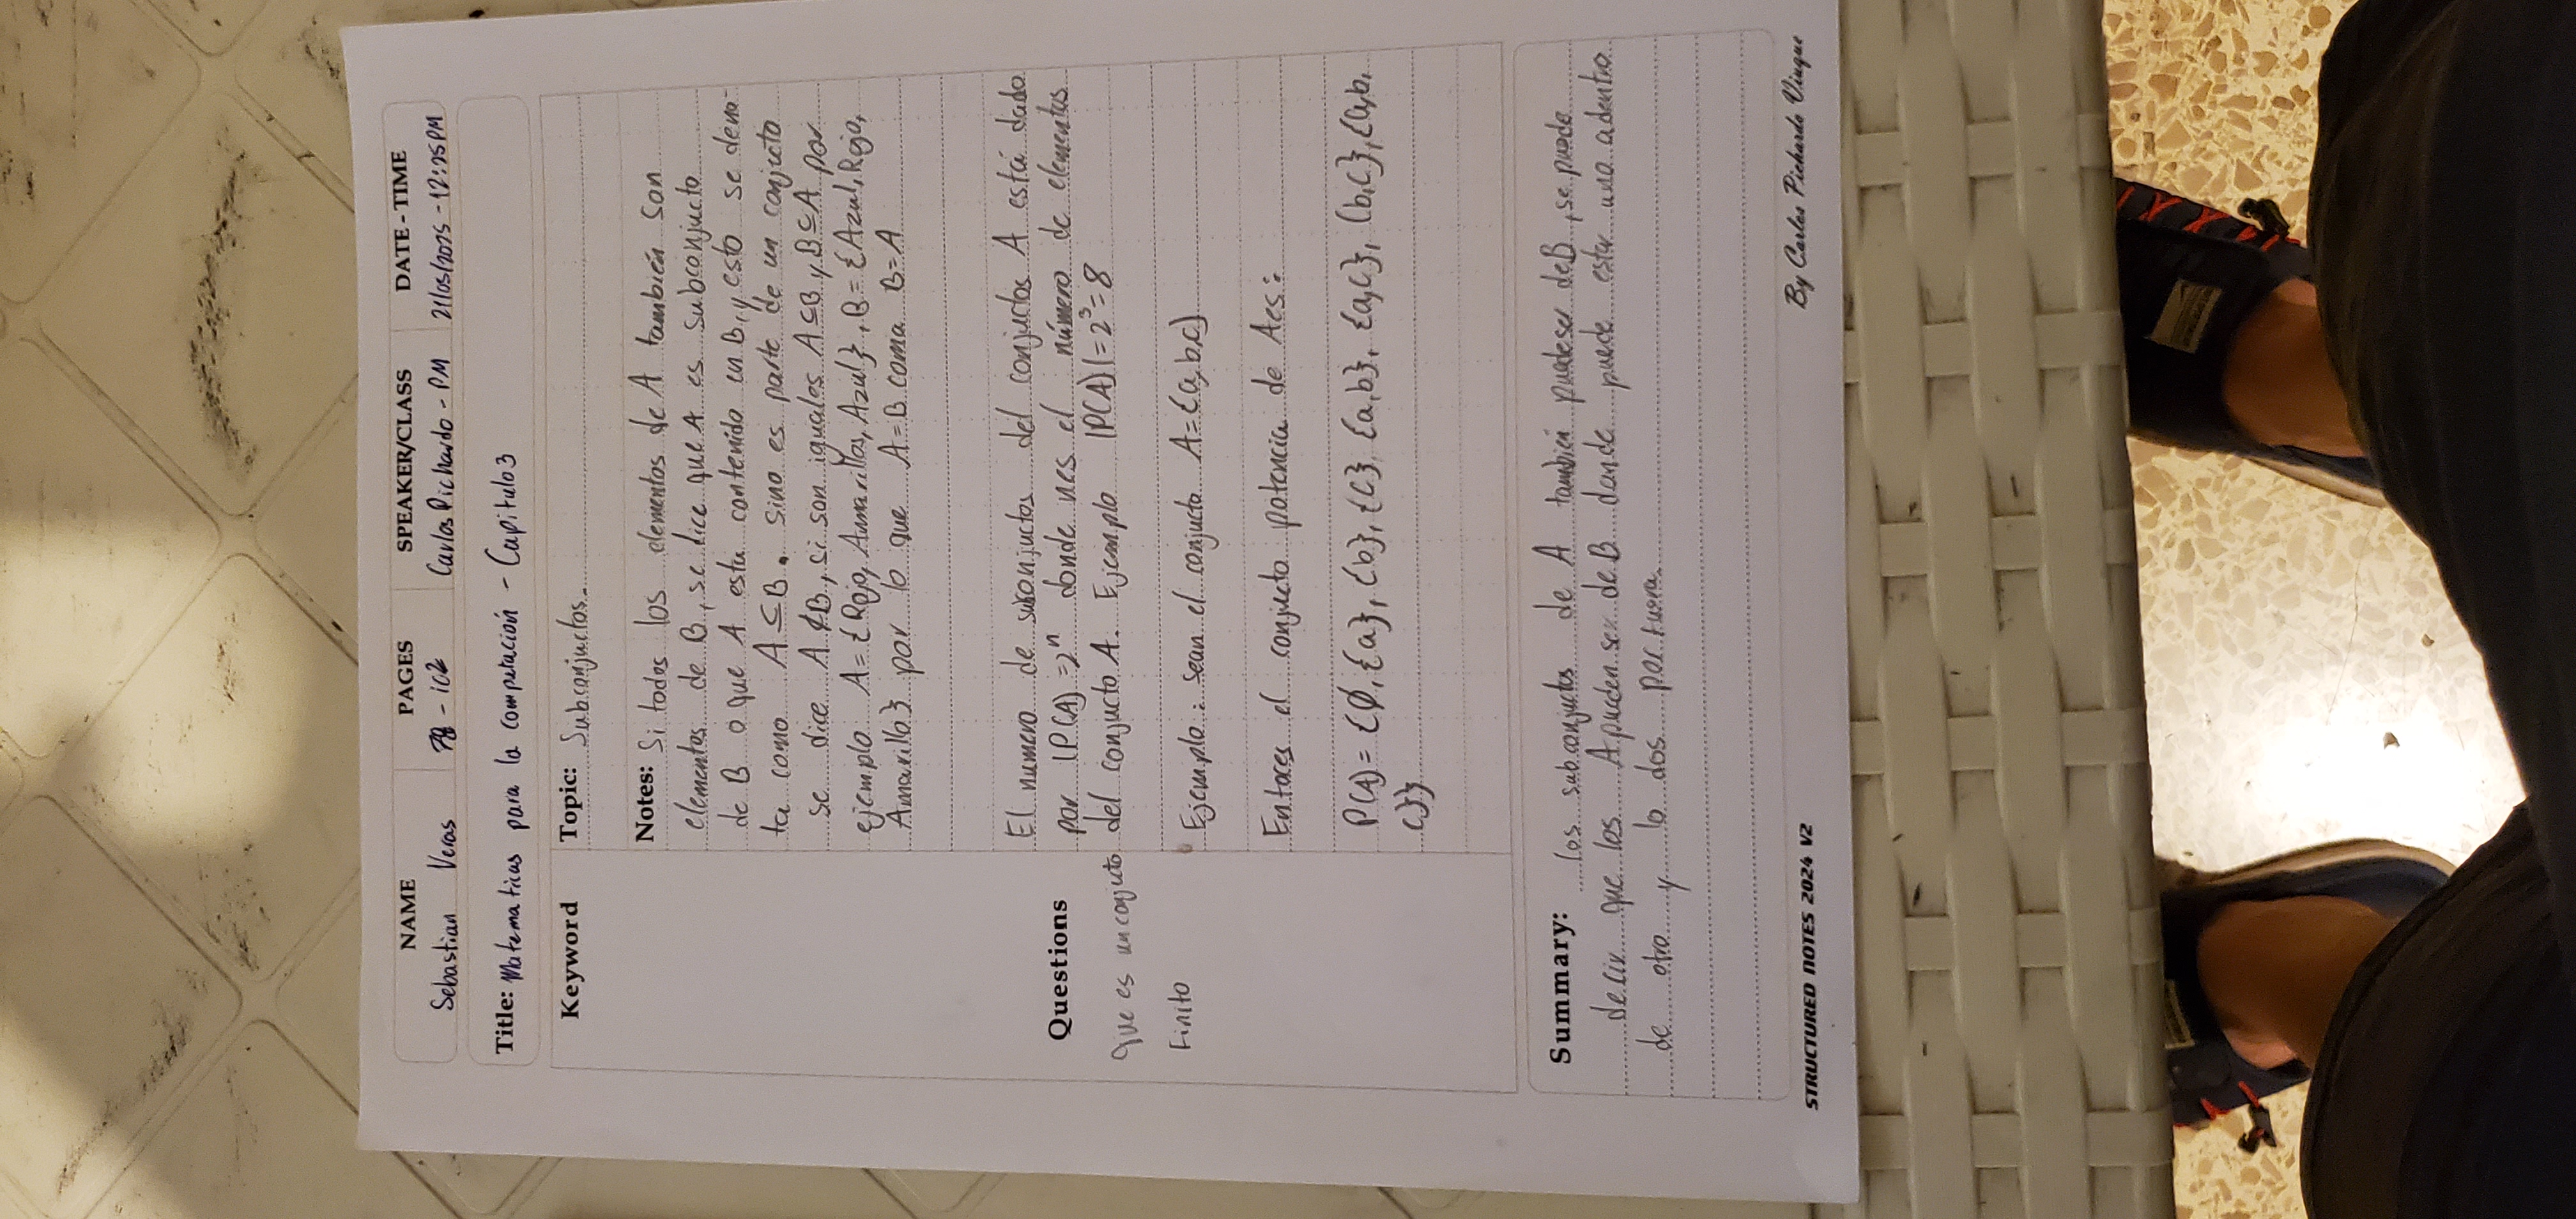 NAME PAGES SPEAKER/CLASS DATE-TIME
Sebastian Veras 78 - 102 Carlos Pichardo - PM 21/05/2025 - 12:25PM
Title: Matematicas para la computación - Capitulo 3
Keyword
Topic: Subconjuctos.
Notes: Si todos los elementos de A también son
elementos de B, se dice que A es subconjucto
de B o que A esta contenido en B, y esto se deno-
ta como A ⊆ B. sino es parte de un conjucto
se dice A ⊄ B, si son iguales A ⊆ B y B ⊆ A por
ejemplo: A = {Rojo, Amarillos, Azul}, B = {Azul, Rojo,
Amarillo} por lo que A = B coma B = A
El numero de subonjuctos del conjuctos A está dado
por |P(A) = 2ⁿ donde n es el número de elementos
del conjucto A. Ejemplo |P(A)| = 2³ = 8
Questions
Que es un conjucto
Finito
Ejemplo: sean el conjucto A = {a, b, c}
Entoces el conjucto potencia de A es:
P(A) = {∅, {a}, {b}, {c}, {a,b}, {a,c}, {b,c}, {a,b,
c}}
Summary: los subconjuctos de A también puede ser de B, se puede
decir que los A pueden ser de B donde puede estar uno adentro
de otro y lo dos por fuera.
STRUCTURED NOTES 2024 V2
By Carlos Pichardo Viuque